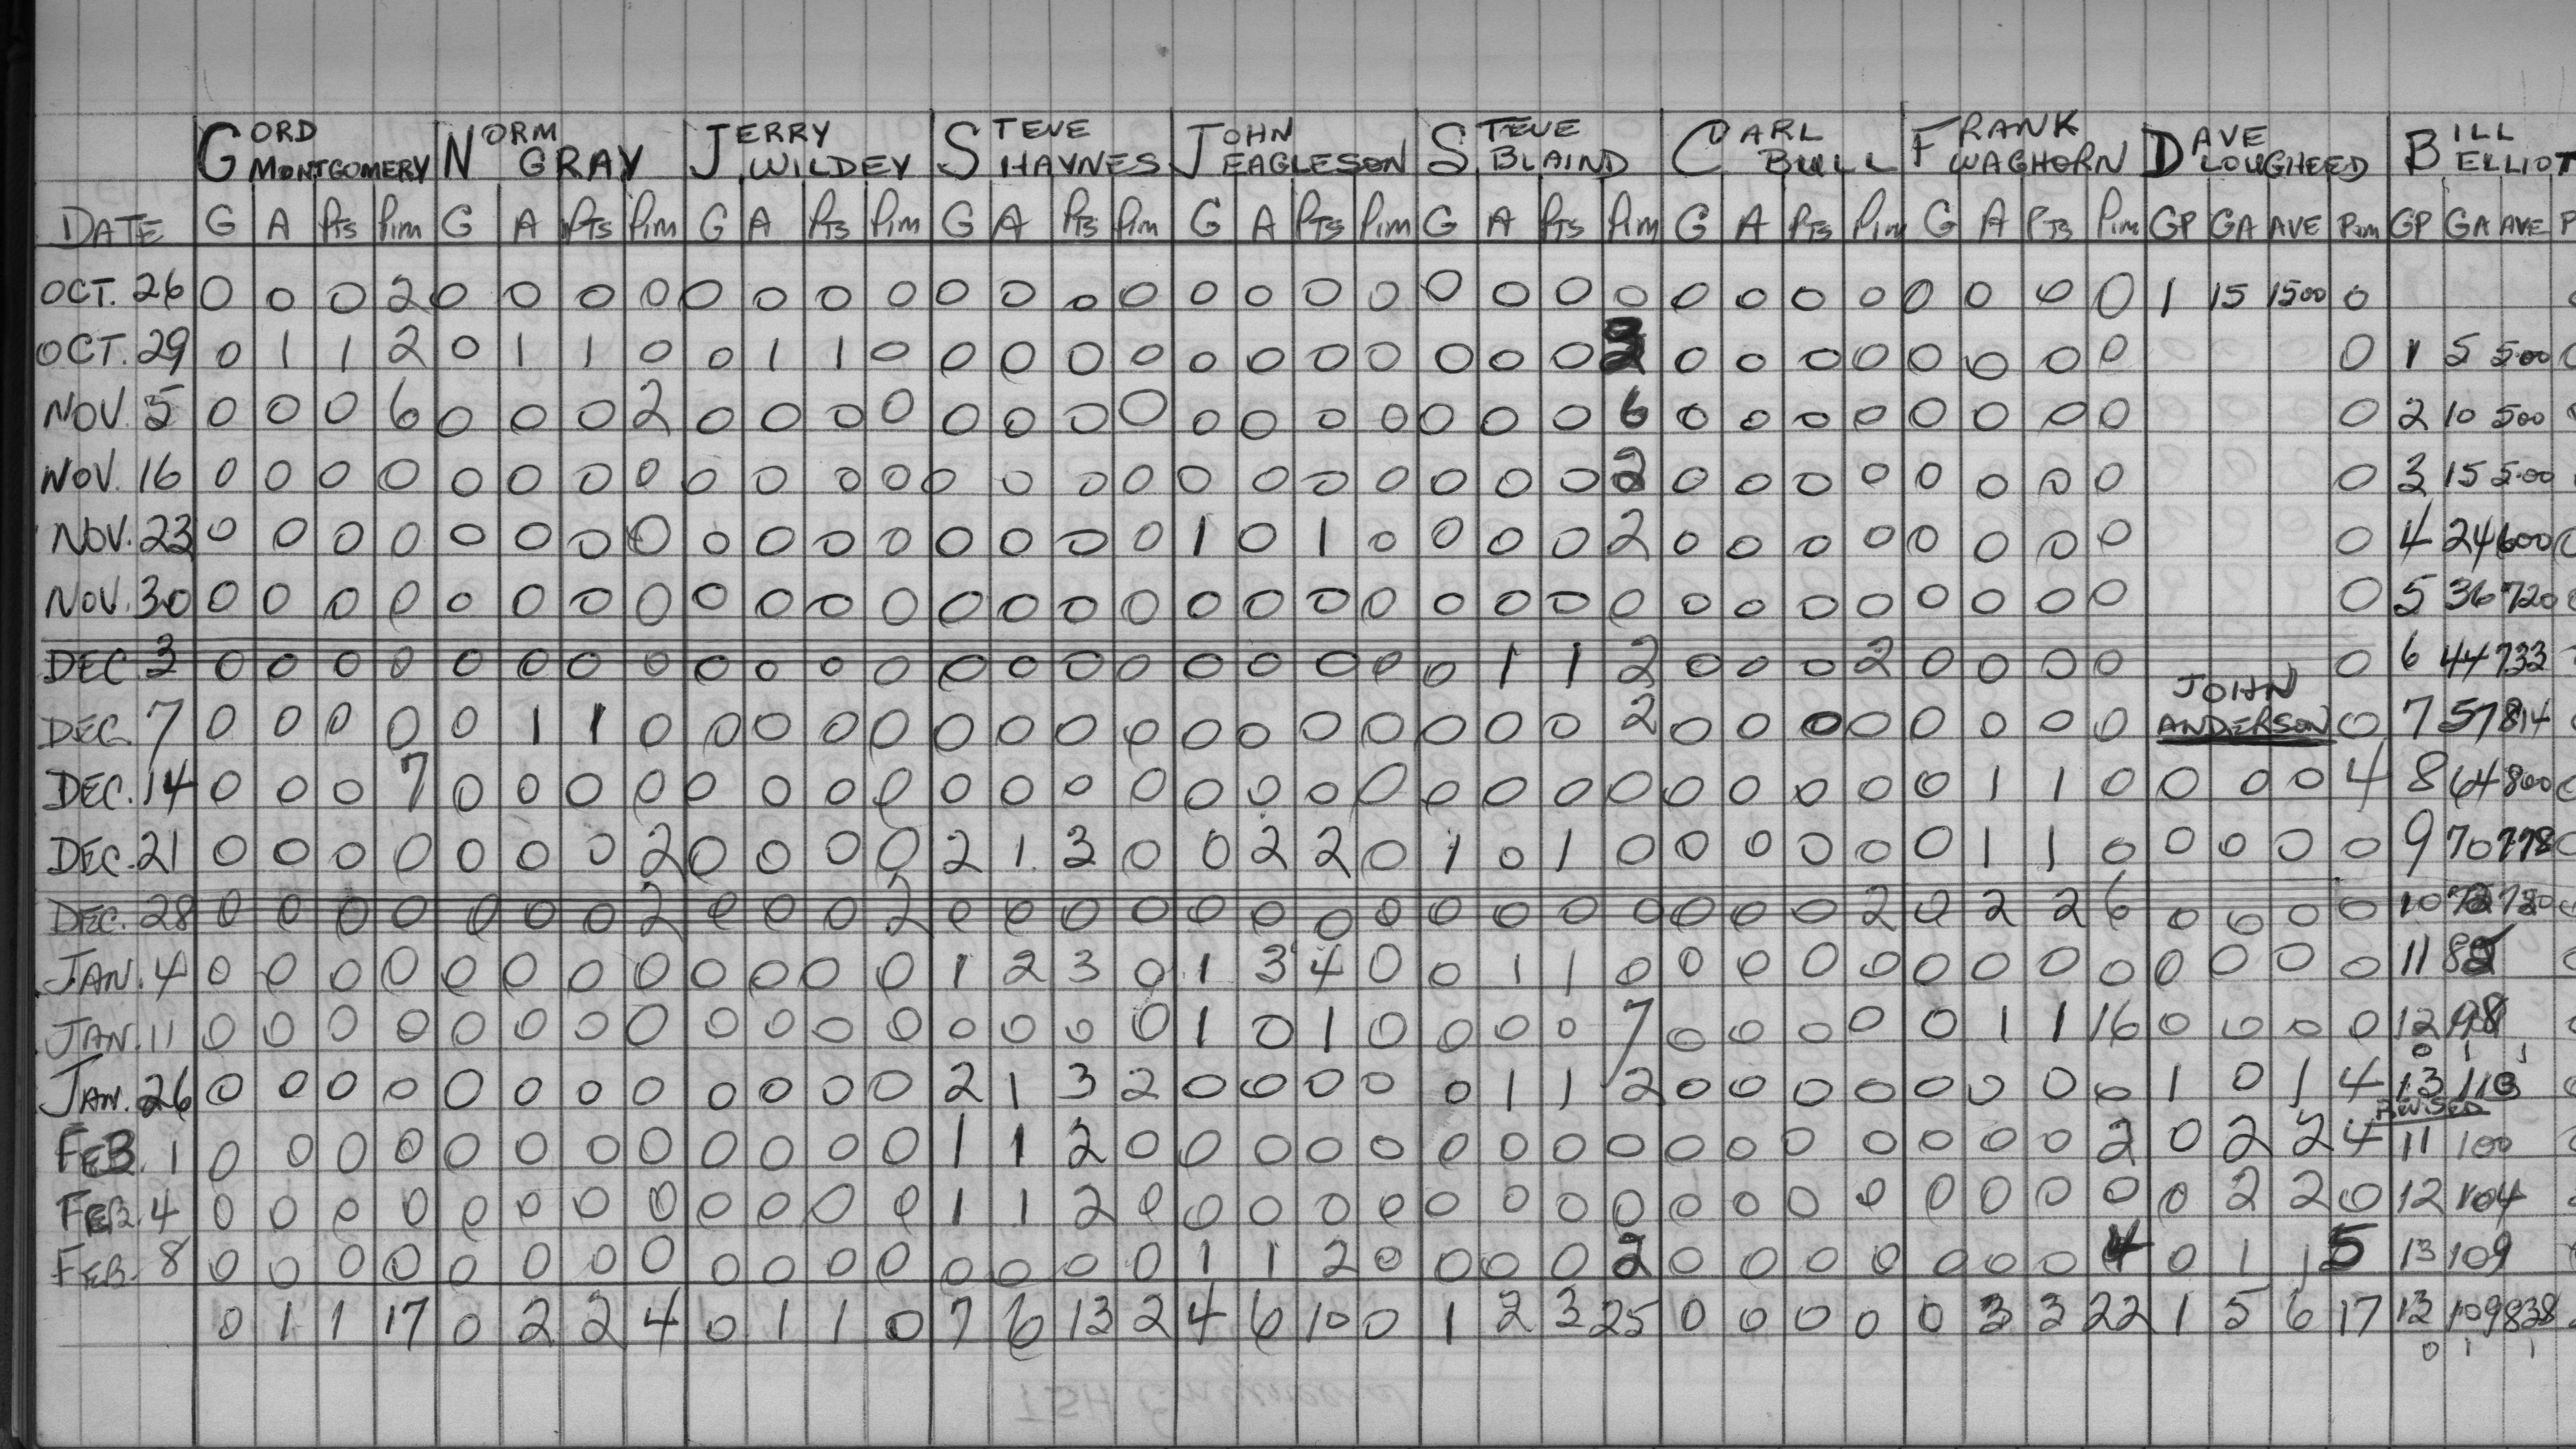 GORD MONTGOMERY NORM GRAY JERRY WILDEY STEVE HAYNES JOHN EAGLESON STEVE BLAIND CARL BULL FRANK WAGHORN DAVE LOUGHEED BILL ELLIOT
DATE G A Pts Pim G A Pts Pim G A Pts Pim G A Pts Pim G A Pts Pim G A Pts Pim G A Pts Pim G A Pts Pim GP GA AVE Pim GP GA AVE P
OCT. 26 0 0 0 2 0 0 0 0 0 0 0 0 0 0 0 0 0 0 0 0 0 0 0 0 0 0 0 0 0 0 0 0 1 15 1500 0
OCT. 29 0 1 1 2 0 1 1 0 0 1 1 0 0 0 0 0 0 0 0 0 0 0 0 0 0 0 0 0 0 0 0 0 1 5 5.00
NOV. 5 0 0 0 6 0 0 0 2 0 0 0 0 0 0 0 0 0 0 0 0 0 0 0 6 0 0 0 0 0 0 0 0 0 2 10 500
NOV. 16 0 0 0 0 0 0 0 0 0 0 0 0 0 0 0 0 0 0 0 0 0 0 0 2 0 0 0 0 0 0 0 0 0 3 15 5.00
NOV. 23 0 0 0 0 0 0 0 0 0 0 0 0 0 0 0 0 1 0 1 0 0 0 0 2 0 0 0 0 0 0 0 0 0 4 24 600
NOV. 30 0 0 0 0 0 0 0 0 0 0 0 0 0 0 0 0 0 0 0 0 0 0 0 0 0 0 0 0 0 0 0 0 0 5 36 720
DEC 3 0 0 0 0 0 0 0 0 0 0 0 0 0 0 0 0 0 0 0 0 0 1 1 2 0 0 0 2 0 0 0 0 0 6 44 733
DEC. 7 0 0 0 0 0 1 1 0 0 0 0 0 0 0 0 0 0 0 0 0 0 0 0 2 0 0 0 0 0 0 0 0 JOHN ANDERSON 0 7 57 814
DEC. 14 0 0 0 7 0 0 0 0 0 0 0 0 0 0 0 0 0 0 0 0 0 0 0 0 0 0 0 0 0 1 1 0 0 0 0 4 8 64 800
DEC. 21 0 0 0 0 0 0 0 2 0 0 0 0 2 1 3 0 0 2 2 0 1 0 1 0 0 0 0 0 0 1 1 0 0 0 0 0 9 70 778
DEC. 28 0 0 0 0 0 0 0 2 0 0 0 2 0 0 0 0 0 0 0 0 0 0 0 0 0 0 0 2 0 2 2 6 0 0 0 0 10
JAN. 4 0 0 0 0 0 0 0 0 0 0 0 0 1 2 3 0 1 3 4 0 0 1 1 0 0 0 0 0 0 0 0 0 0 0 0 0 11
JAN. 11 0 0 0 0 0 0 0 0 0 0 0 0 0 0 0 0 1 0 1 0 0 0 0 7 0 0 0 0 0 1 1 16 0 0 0 0 12 98
0 1 1
JAN. 26 0 0 0 0 0 0 0 0 0 0 0 0 2 1 3 2 0 0 0 0 0 1 1 2 0 0 0 0 0 0 0 0 1 0 1 4 13
REVISED
FEB. 1 0 0 0 0 0 0 0 0 0 0 0 0 1 1 2 0 0 0 0 0 0 0 0 0 0 0 0 0 0 0 0 2 0 2 2 4 11 100
FEB. 4 0 0 0 0 0 0 0 0 0 0 0 0 1 1 2 0 0 0 0 0 0 0 0 0 0 0 0 0 0 0 0 0 0 2 2 0 12 104
FEB. 8 0 0 0 0 0 0 0 0 0 0 0 0 0 0 0 0 1 1 2 0 0 0 0 2 0 0 0 0 0 0 0 4 0 1 1 5 13 109
0 1 1 17 0 2 2 4 0 1 1 0 7 6 13 2 4 6 10 0 1 2 3 25 0 0 0 0 0 3 3 22 1 5 6 17 13 109 838
0 1 1